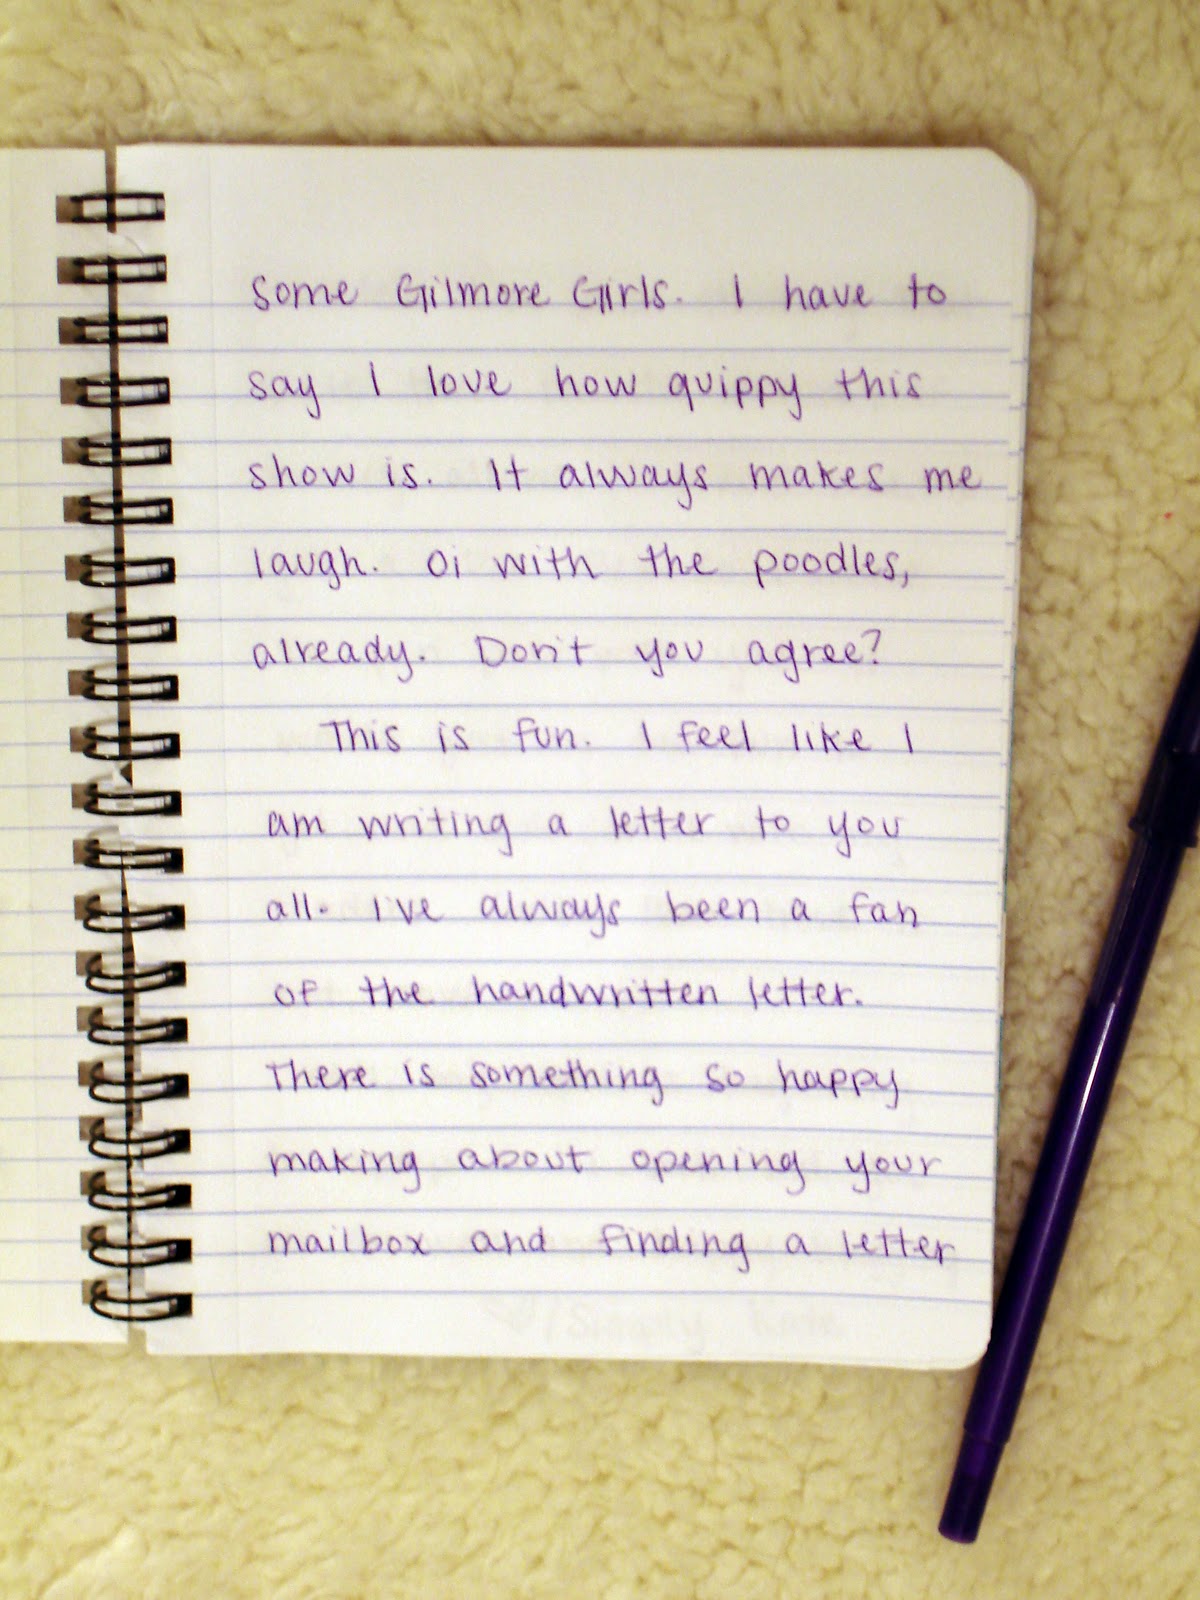 some Gilmore Girls. I have to
say I love how quippy this
show is. It always makes me
laugh. Oi with the poodles,
already. Don't you agree?
This is fun. I feel like I
am writing a letter to you
all. I've always been a fan
of the handwritten letter.
There is something so happy
making about opening your
mailbox and finding a letter